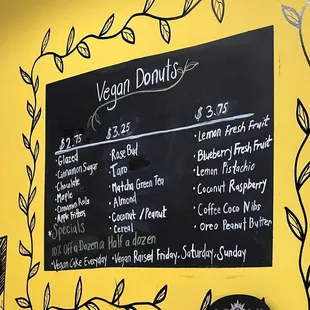 Vegan Donuts
$2.75
· Glazed
· Cinnamon Sugar
· Chocolate
· Maple
· Cinnamon Rolls
· Apple Fritters
$3.25
· Rose Bud
· Taro
· Matcha Green Tea
· Almond
· Coconut/Peanut
· Cereal
$3.75
· Lemon Fresh Fruit
· Blueberry Fresh Fruit
· Lemon Pistachio
· Coconut Raspberry
· Coffee Coco Nibs
· Oreo Peanut Butter
Specials
10% Off a Dozen & Half a dozen
· Vegan Cake Everyday · Vegan Raised Friday, Saturday, Sunday